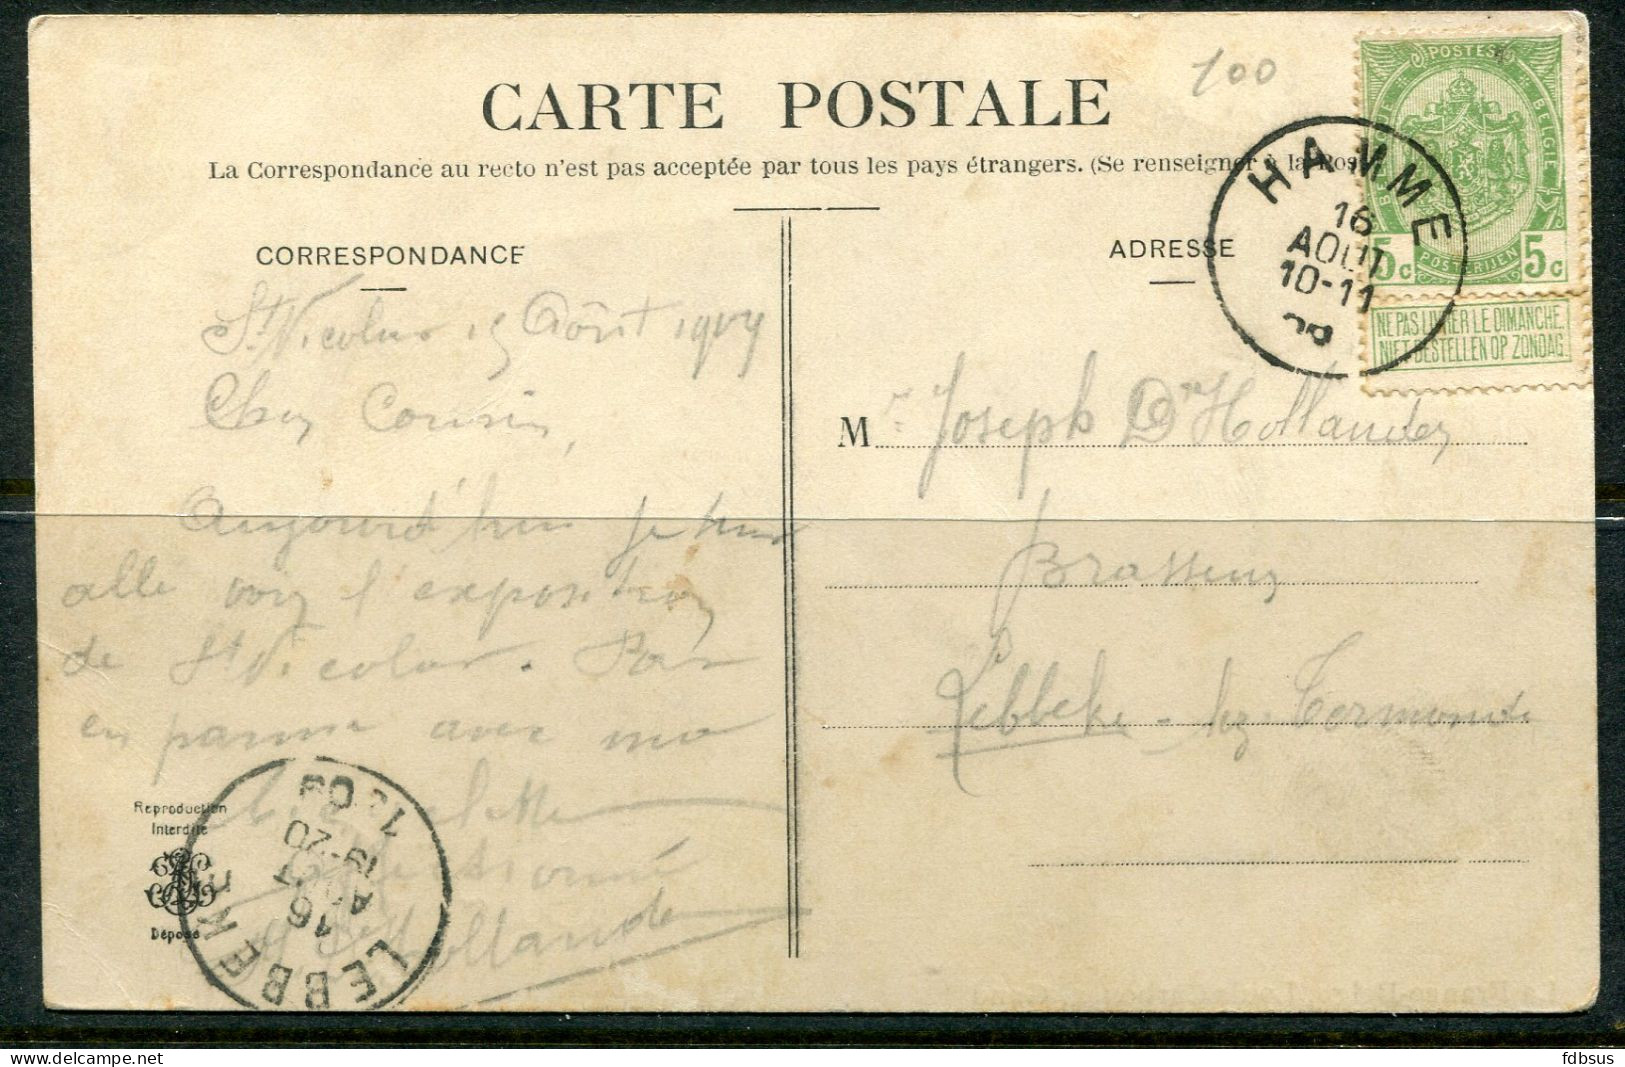 100
CARTE POSTALE
La Correspondance au recto n'est pas acceptée par tous les pays étrangers. (Se renseigner à la Pos
POSTES
BELGIE
5c 5c
POSTERIJEN
NE PAS LIVRER LE DIMANCHE.
NIET BESTELLEN OP ZONDAG
HAMME
16
AOUT
10-11
CORRESPONDANCE
ADRESSE
St Nicolas 15 Août
Cher Cousin,
Aujourd'hui je
allé voir l'exposition
de St Nicolas.
en avec
Hollander
Mr Joseph De Hollander
Brasseur
Lebbeke-lez-Termonde
Reproduction
Interdite
Déposé
LEBBEKE
16
19-20
fdbsus